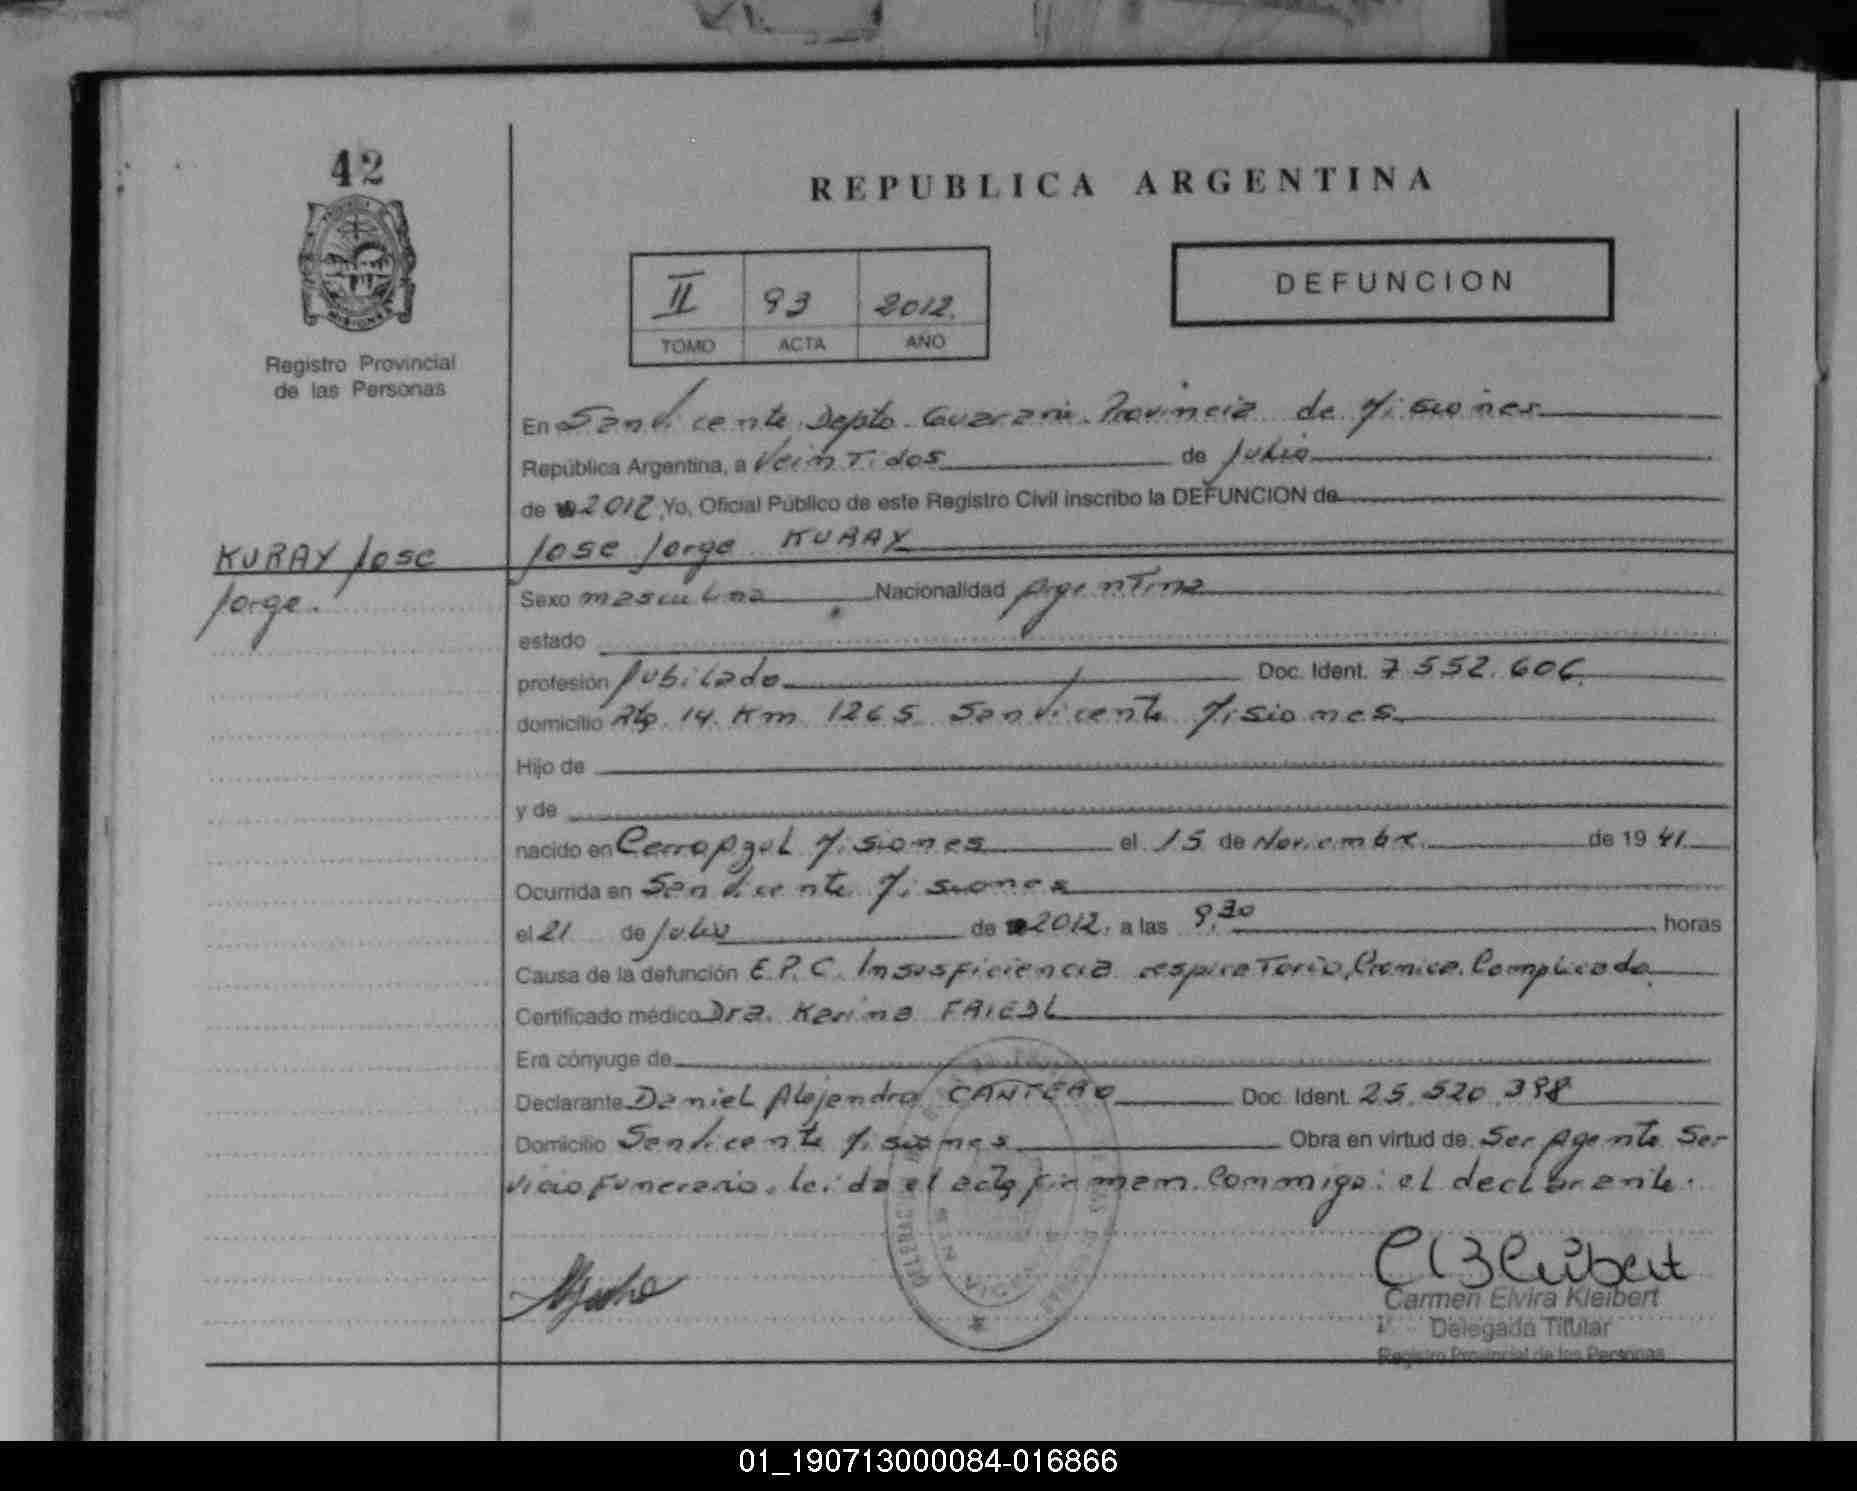 42
REPUBLICA ARGENTINA
II 93 2012.
TOMO ACTA AÑO
DEFUNCION
Registro Provincial
de las Personas
En San Vicente Depto. Guarani. Provincia de Misiones
República Argentina, a Veintidos de Julio
de 2012 Yo, Oficial Público de este Registro Civil inscribo la DEFUNCION de
KURAY Jose
Jorge.
Jose Jorge KURAY
Sexo masculino Nacionalidad Argentina
estado
profesión Jubilado Doc. Ident. 7.552.606
domicilio Rta 14. Km 1265 San Vicente Misiones
Hijo de
y de
nacido en Cerro Azul Misiones el 15 de Noviembre de 1941
Ocurrida en San Vicente Misiones
el 21 de Julio de 2012. a las 9,30 horas
Causa de la defunción E.P.C. Insusficiencia respiratorio, Cronica. Complicada
Certificado médico Dra. Karina FRIEDL
Era cónyuge de
Declarante Daniel Alejandro CANTERO Doc. Ident. 25.520.398
Domicilio San Vicente Misiones Obra en virtud de Ser Agente Ser-
vicio Funerario. leida el acta firmam. Conmigo: el declarante.
Carmen Elvira Kleibert
Delegada Titular
Registro Provincial de las Personas
01_190713000084-016866